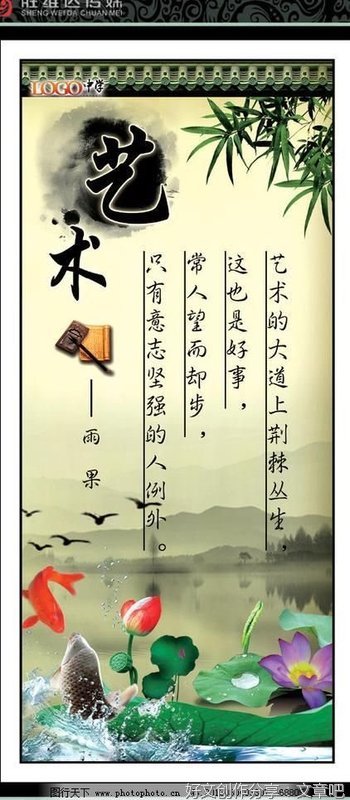 胜维达传媒
SHENG WEI DA CHUAN MEI
LOGO中学
艺术
艺术的大道上荆棘丛生，
这也是好事，
常人望而却步，
只有意志坚强的人例外。
——雨果
好文创作分享——文章吧
图行天下 www.photophoto.cn